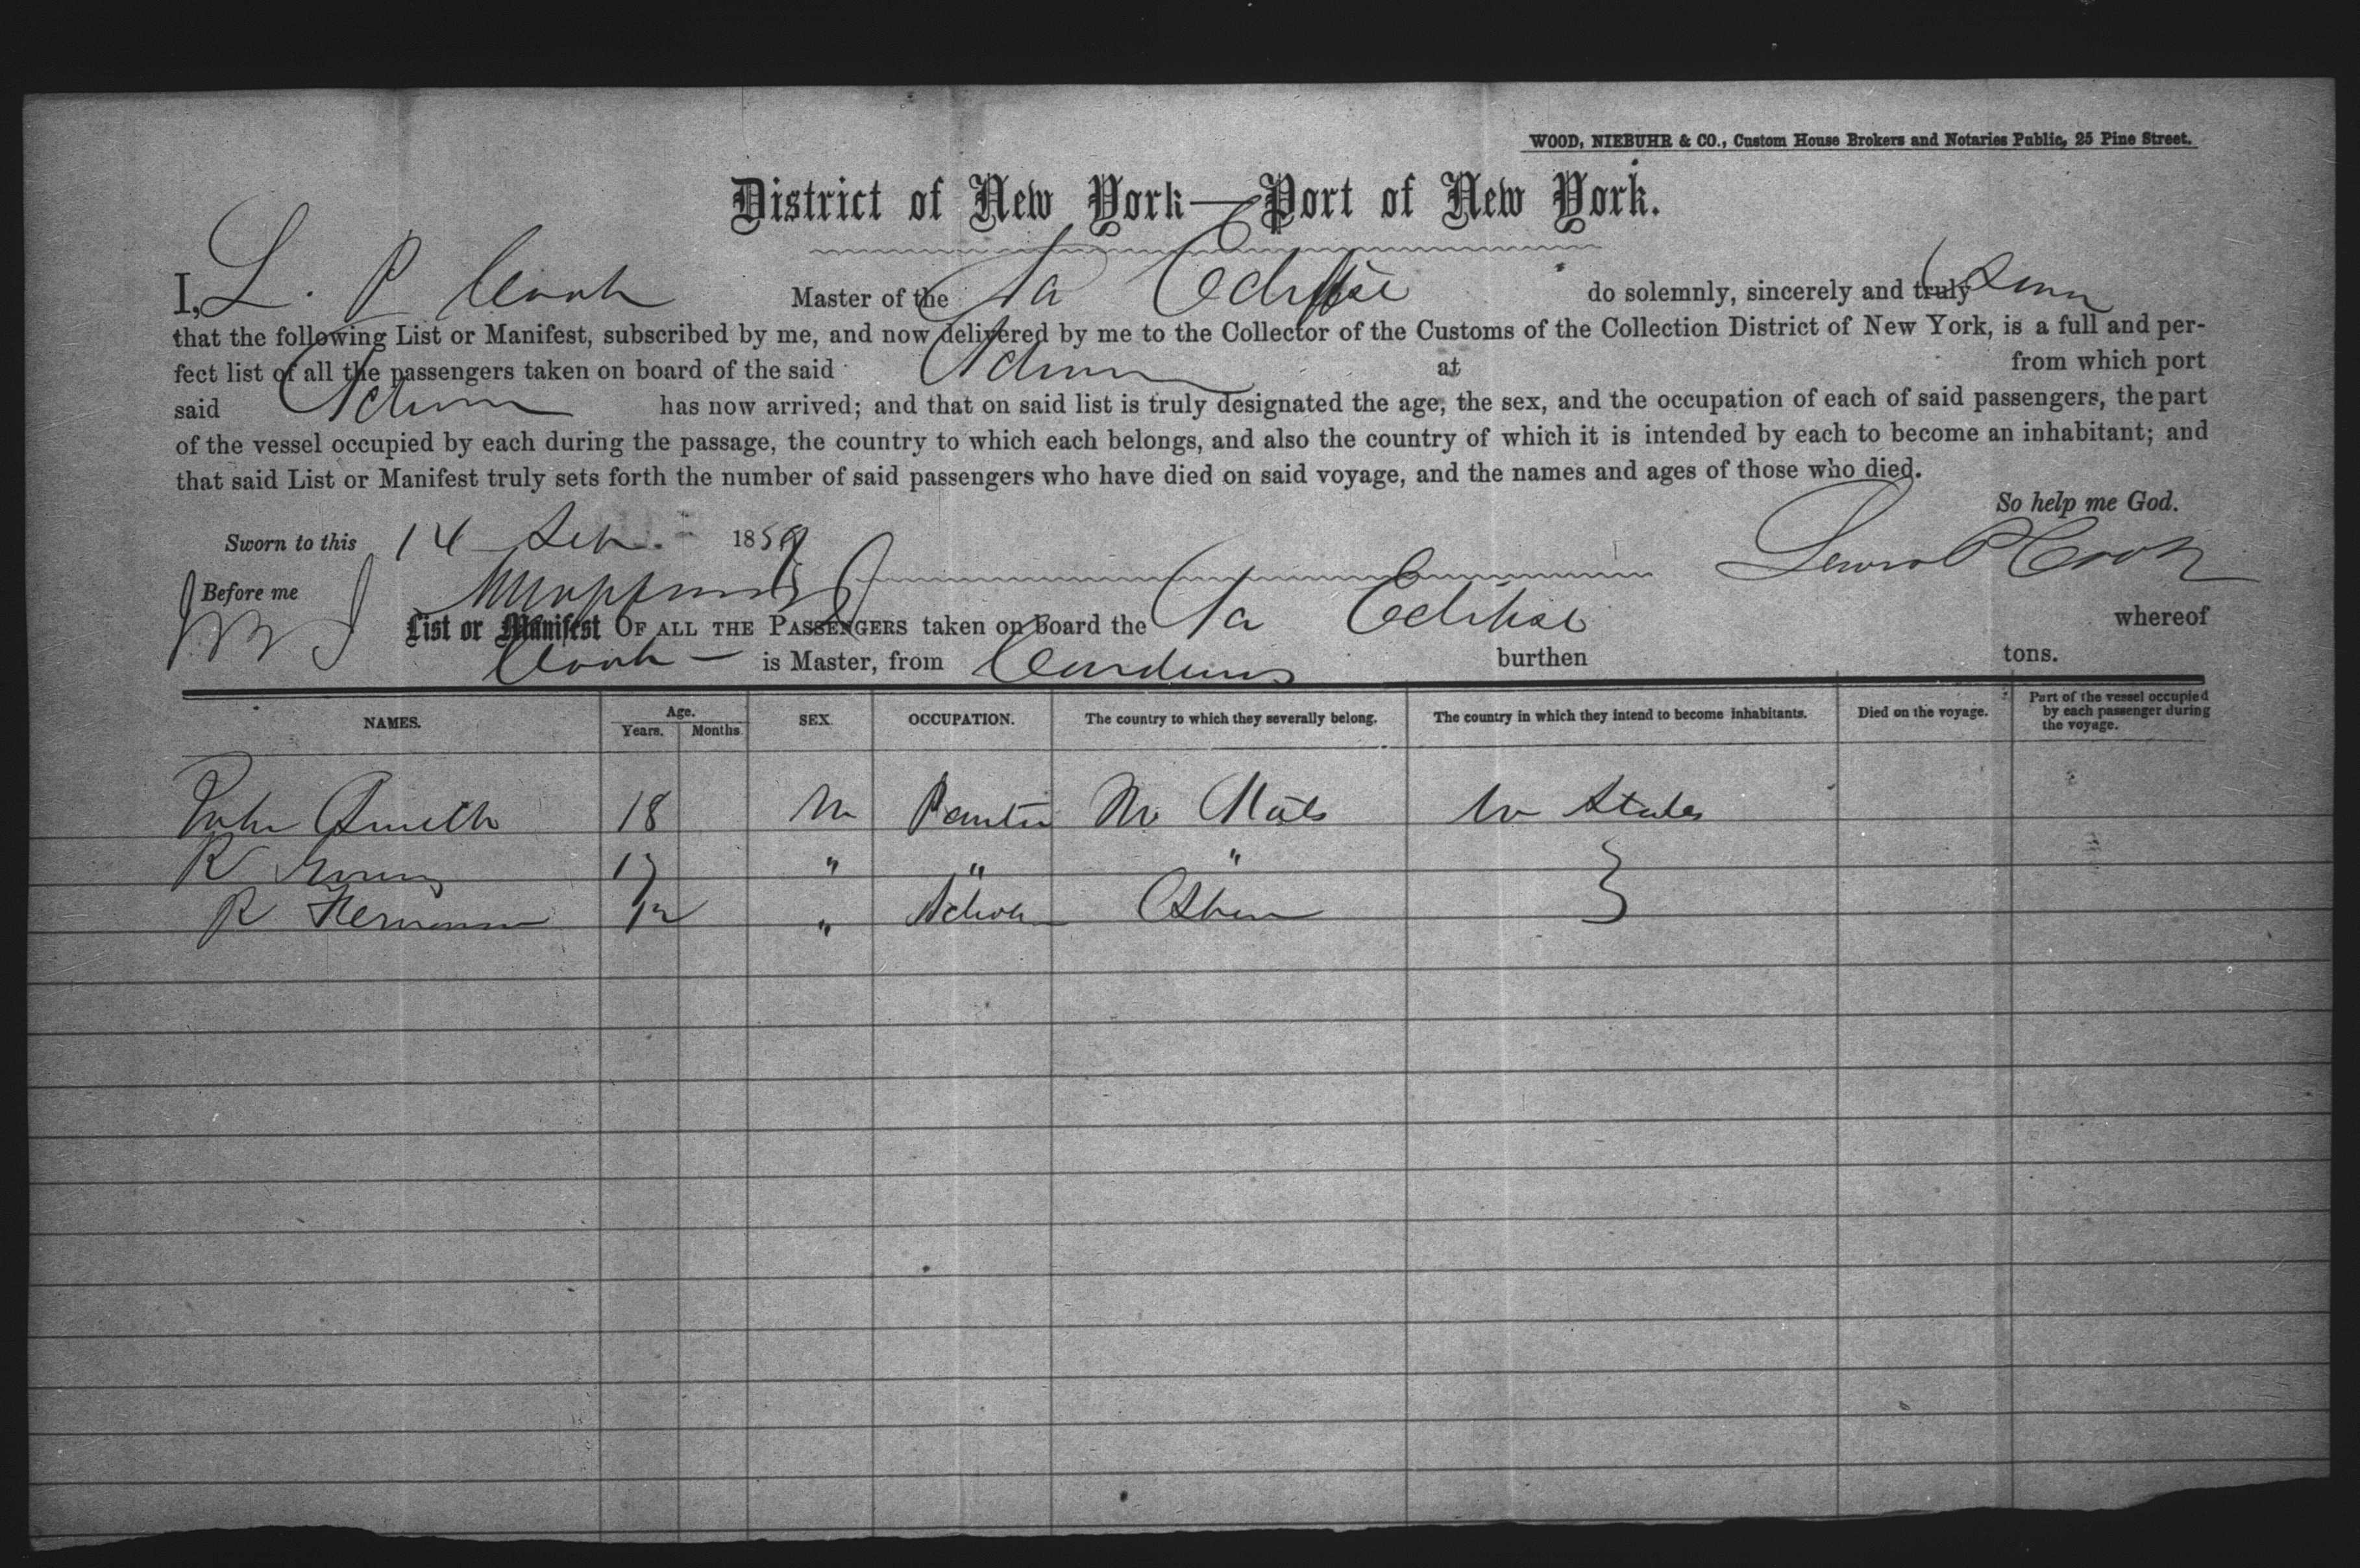 WOOD, NIEBUHR & CO., Custom House Brokers and Notaries Public, 25 Pine Street.
District of New York—Port of New York.
I, L. P Cook Master of the do solemnly, sincerely and truly
that the following List or Manifest, subscribed by me, and now delivered by me to the Collector of the Customs of the Collection District of New York, is a full and per-
fect list of all the passengers taken on board of the said at from which port
said has now arrived; and that on said list is truly designated the age, the sex, and the occupation of each of said passengers, the part
of the vessel occupied by each during the passage, the country to which each belongs, and also the country of which it is intended by each to become an inhabitant; and
that said List or Manifest truly sets forth the number of said passengers who have died on said voyage, and the names and ages of those who died.
So help me God.
Sworn to this 14 1859
Before me P Cook
List or Manifest OF ALL THE PASSENGERS taken on board the whereof
Cook — is Master, from burthen tons.
NAMES. Age. Years. Months SEX. OCCUPATION. The country to which they severally belong. The country in which they intend to become inhabitants. Died on the voyage. Part of the vessel occupied by each passenger during the voyage.
John Smith 18 M States
R " " "
R Herman 12 "